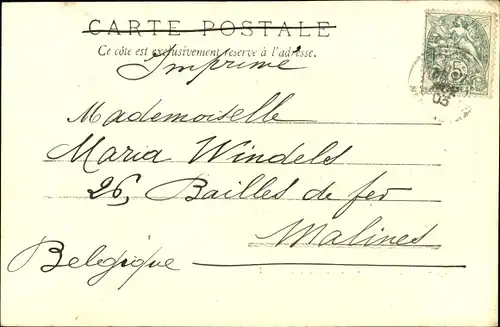 CARTE POSTALE
Ce côté est exclusivement réservé à l'adresse.
Imprimé
Mademoiselle
Maria Windels
26, Bailles de fer
Malines
Belgique
5
03